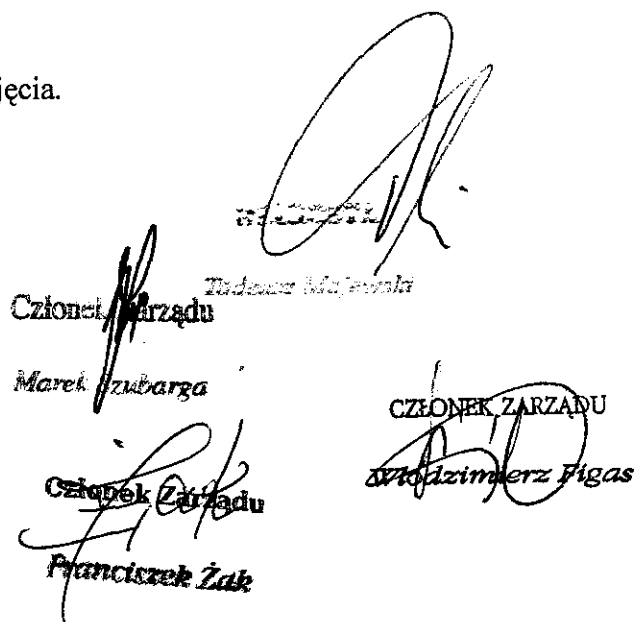 jęcia.
Tadeusz Majewski
Członek Zarządu
Marek Szubarga
CZŁONEK ZARZĄDU
Włodzimierz Figas
Członek Zarządu
Franciszek Żak